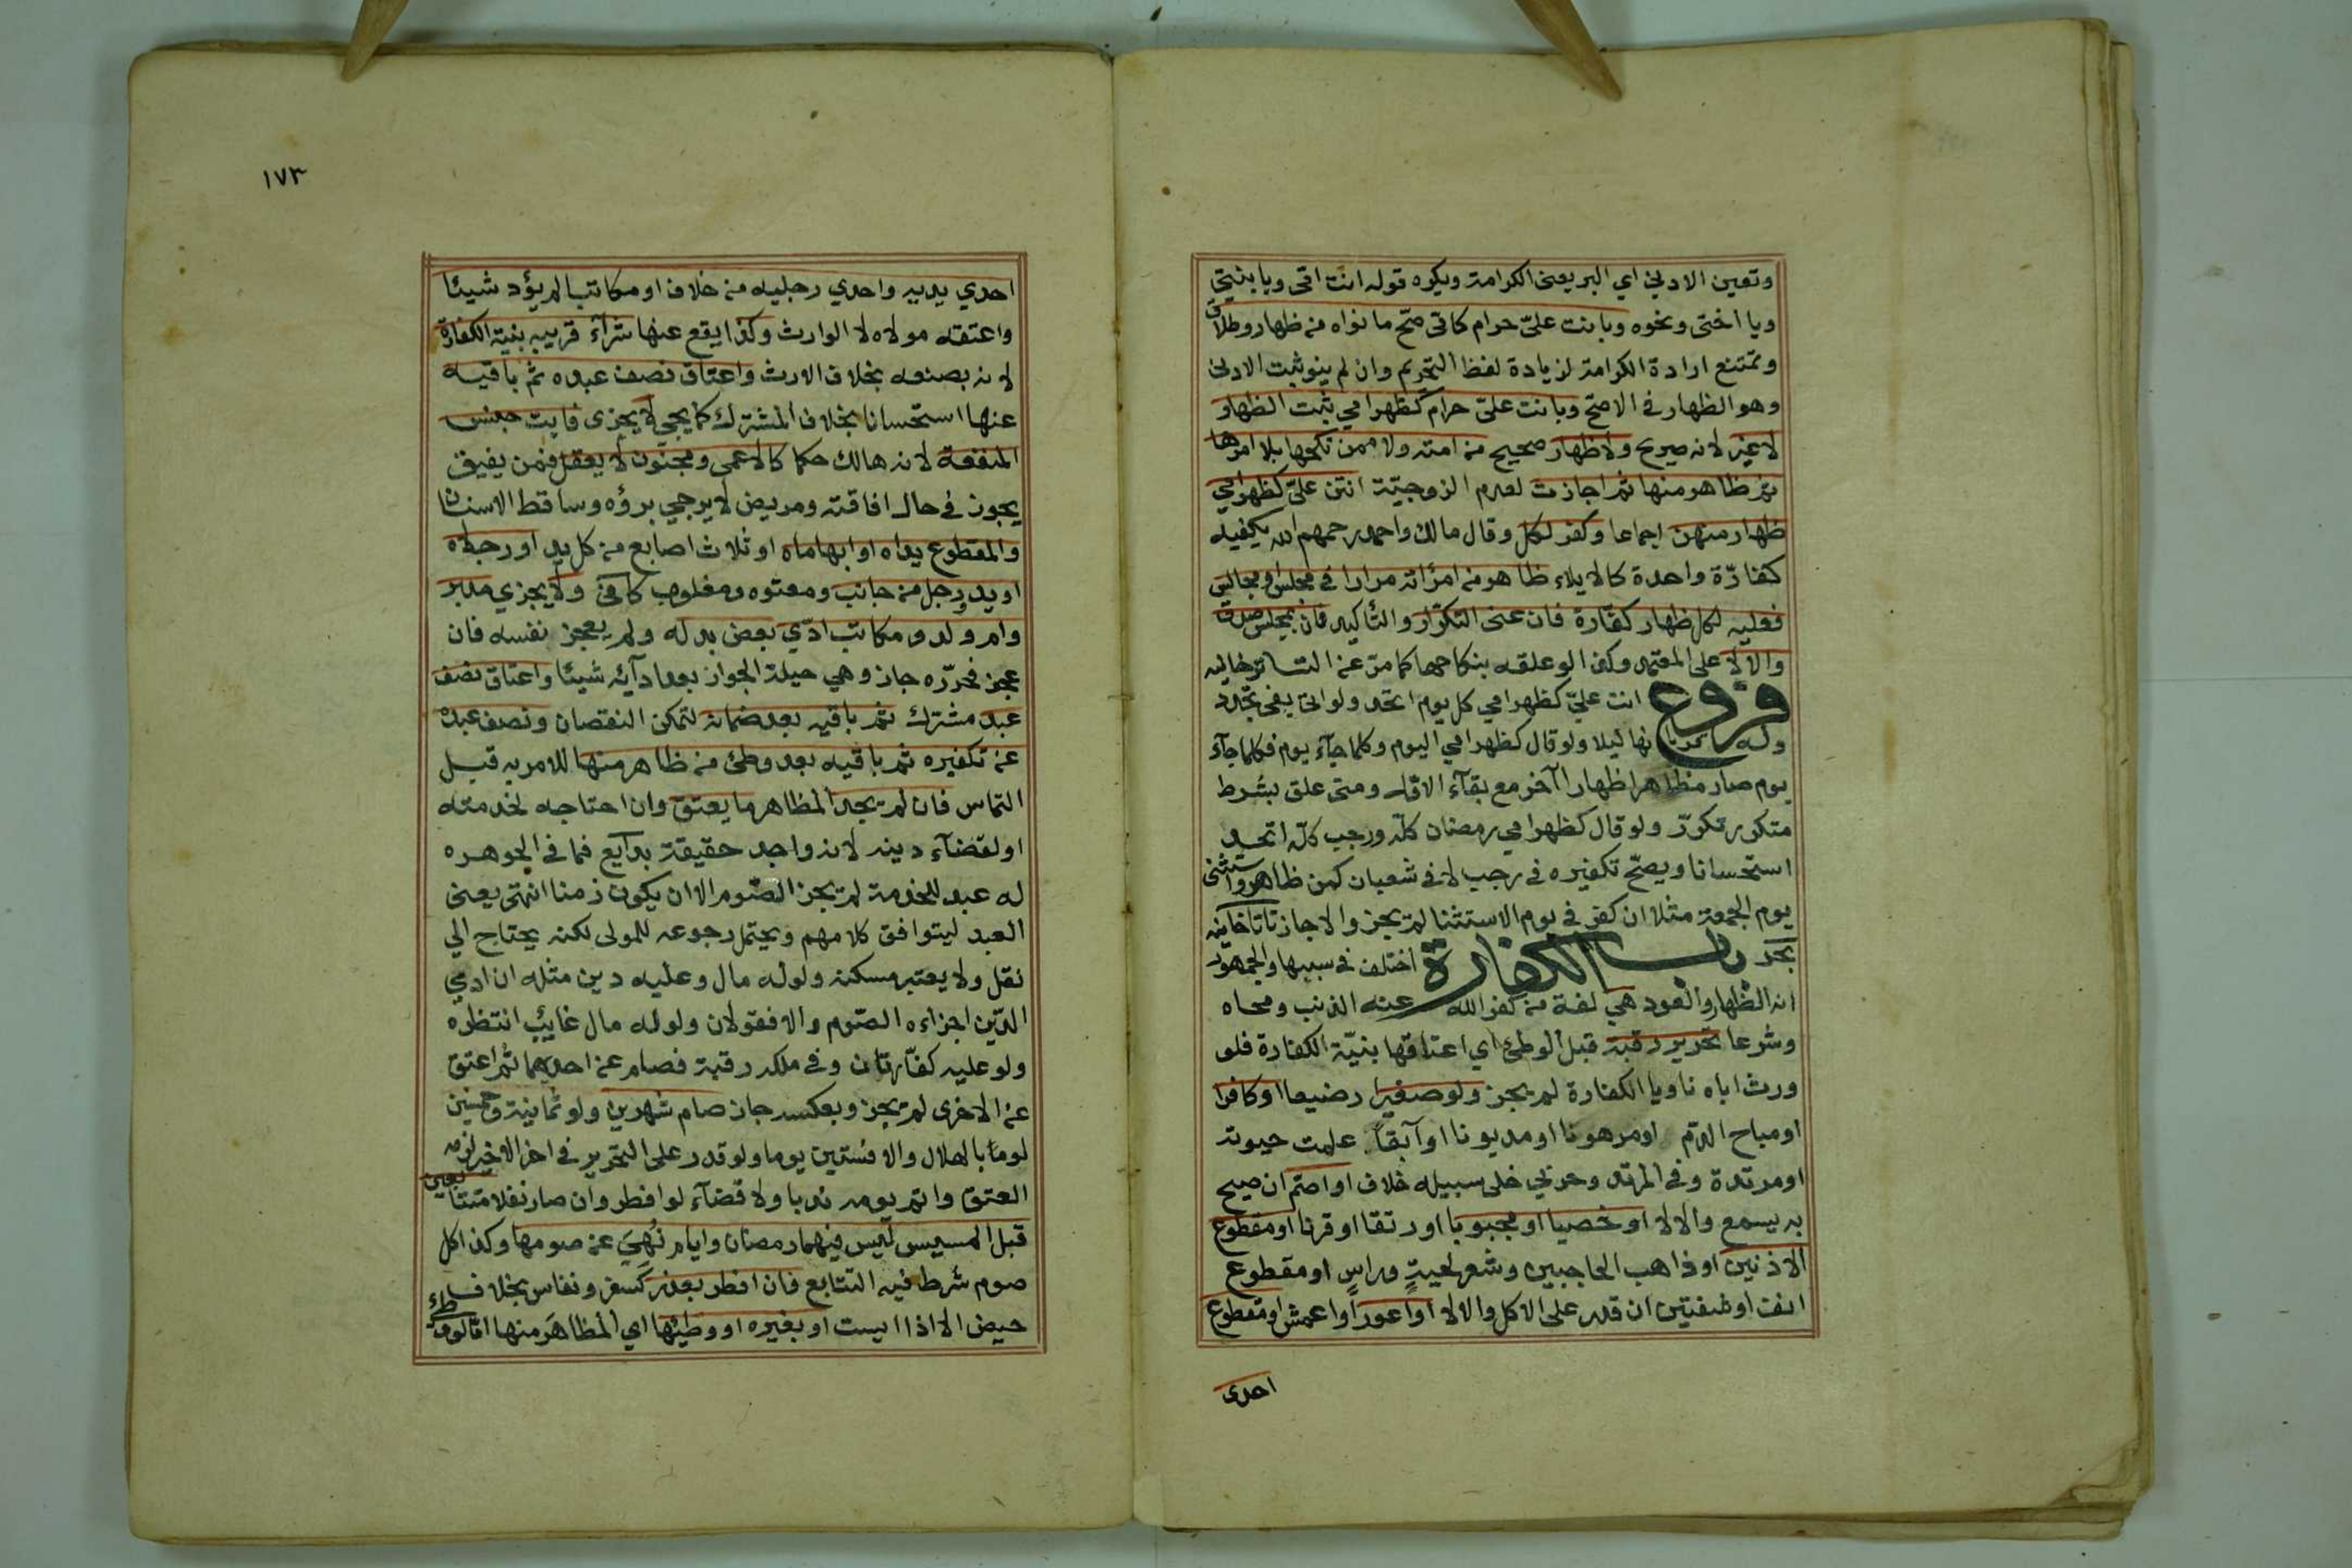 وتعين الادني اي البر يعني الكرامة ويكره قوله انت امي ويا بنيتي
ويا اختي ونحوه وبانت عليّ حرام كامي صح ما نواه من ظهار وطلاق
وتمتنع ارادة الكرامة لزيادة لفظ التحريم وان لم ينو ثبت الادني
وهو الظهار في الاصح وبانت عليّ حرام كظهر امي ثبت الظهار
لا غير لانه صريح ولا ظهار صحيح من امته ولا ممن نكحها بلا امرها
ثم ظاهر منها ثم اجازت لعدم الزوجيّة انتن عليّ كظهر امي
ظهار منهن اجماعا وكفر لكل وقال مالك واحمد رحمهم الله يكفيه
كفارّة واحدة كالايلاء ظاهر من امرأته مرارا في مجلس او مجالس
فعليه لكل ظهار كفّارة فان عني التكرّار والتأكيد فان بمجلس صدق
والا لا على المعتمد وكذا لو علقه بنكاحها كما مرّ عن التاترخانيه
فروع انت عليّ كظهر امي كل يوم اتحد ولو اتي بفي تجدد
وله قربانها ليلا ولو قال كظهر امي اليوم وكلما جآء يوم فكلما جآء
يوم صار مظاهرا ظهارا آخر مع بقآء الاوّل ومتى علق بشرط
متكرر تكرّر ولو قال كظهر امي رمضان كلّه ورجب كلّه اتحد
استحسانا ويصحّ تكفيره في رجب لا في شعبان كمن ظاهر واستثنى
يوم الجمعة مثلا ان كفر في يوم الاستثنا لم يجز والا جاز تاتارخانيه
بحر باب الكفارة اختلف في سببها والجمهور
انه الظهار والعود هي لغة من كفر الله عنه الذنب ومحاه
وشرعا تحرير رقبة قبل الوطئ اي اعتاقها بنيّة الكفارة فلو
ورث اباه ناويا الكفارة لم يجز ولو صغيرا رضيعا او كافرا
او مباح الدّم او مرهونا او مديونا او آبقاً علمت حيوته
او مرتدة وفي المرتد وحربي خلي سبيله خلاف او اصم ان صيح
به يسمع والا لا او خصيا او مجبوبا او رتقا او قرنا او مقطوع
الاذنين او ذاهب الحاجبين وشعر لحيةٍ وراسٍ او مقطوع
انف او شفتين ان قدر على الاكل والا لا او اعور او اعمش او مقطوع
احدى
١٧٣
احدي يديه واحدي رجليه من خلاف او مكاتبا لم يؤد شيئا
واعتقه مولاه لا الوارث وكذا يقع عنها شرآء قريبه بنية الكفارة
لانه بصنعه بخلاف الارث واعتاق نصف عبده ثم باقيه
عنها استحسانا بخلاف المشترك كما يجي لا يجزى فايت جنس
المنفعة لانه هالك حكما كالاعمى ومجنون لا يعقل فمن يفيق
يجوز في حال افاقته ومريض لا يرجي برؤه وساقط الاسنان
والمقطوع يداه او ابهاماه او ثلاث اصابع من كل يد او رجلاه
او يد ورجل من جانب ومعتوه ومغلوب كافى ولا يجزي مدبر
وام ولد ومكاتب ادّي بعض بدله ولم يعجز نفسه فان
عجز فحرّره جاز وهي حيلة الجواز بعد ادآئه شيئا واعتاق نصف
عبد مشترك ثم باقيه بعد ضمانه لتمكن النقصان ونصف عبده
عن تكفيره ثم باقيه بعد وطئ من ظاهر منها للامر به قبل
التماس فان لم يجد المظاهر ما يعتق وان احتاجه لخدمته
او لقضآء دينه لانه واجد حقيقة بدآيع فما في الجوهره
له عبد للخدمة لم يجز الصّوم الا ان يكون زمنا انتهى يعنى
العبد ليتوافق كلامهم ويحتمل رجوعه للمولى لكنه يحتاج الي
نقل ولا يعتبر مسكنه ولو له مال وعليه دين مثله ان ادي
الدّين اجزاءه الصّوم والا فقولان ولو له مال غايب انتظره
ولو عليه كفّارتان وفي ملكه رقبة فصام عن احديهما ثم اعتق
عن الاخرى لم يجز وبعكسه جاز صام شهرين ولو ثمانية وخمسين
يوما بالهلال والا فستين يوما ولو قدر على التحرير في اخر الاخير لزمه
العتق واتم يومه ندبا ولا قضآء لو افطر وان صار نفلا متتابعين
قبل المسيس ليس فيهما رمضان وايام نُهيَ عن صومها وكذا كل
صوم شرط فيه التتابع فان افطر بعذر كسفر ونفاس بخلاف
حيض الا اذا ايست او بغيره او وطئها اي المظاهَر منها اما لو وطئ